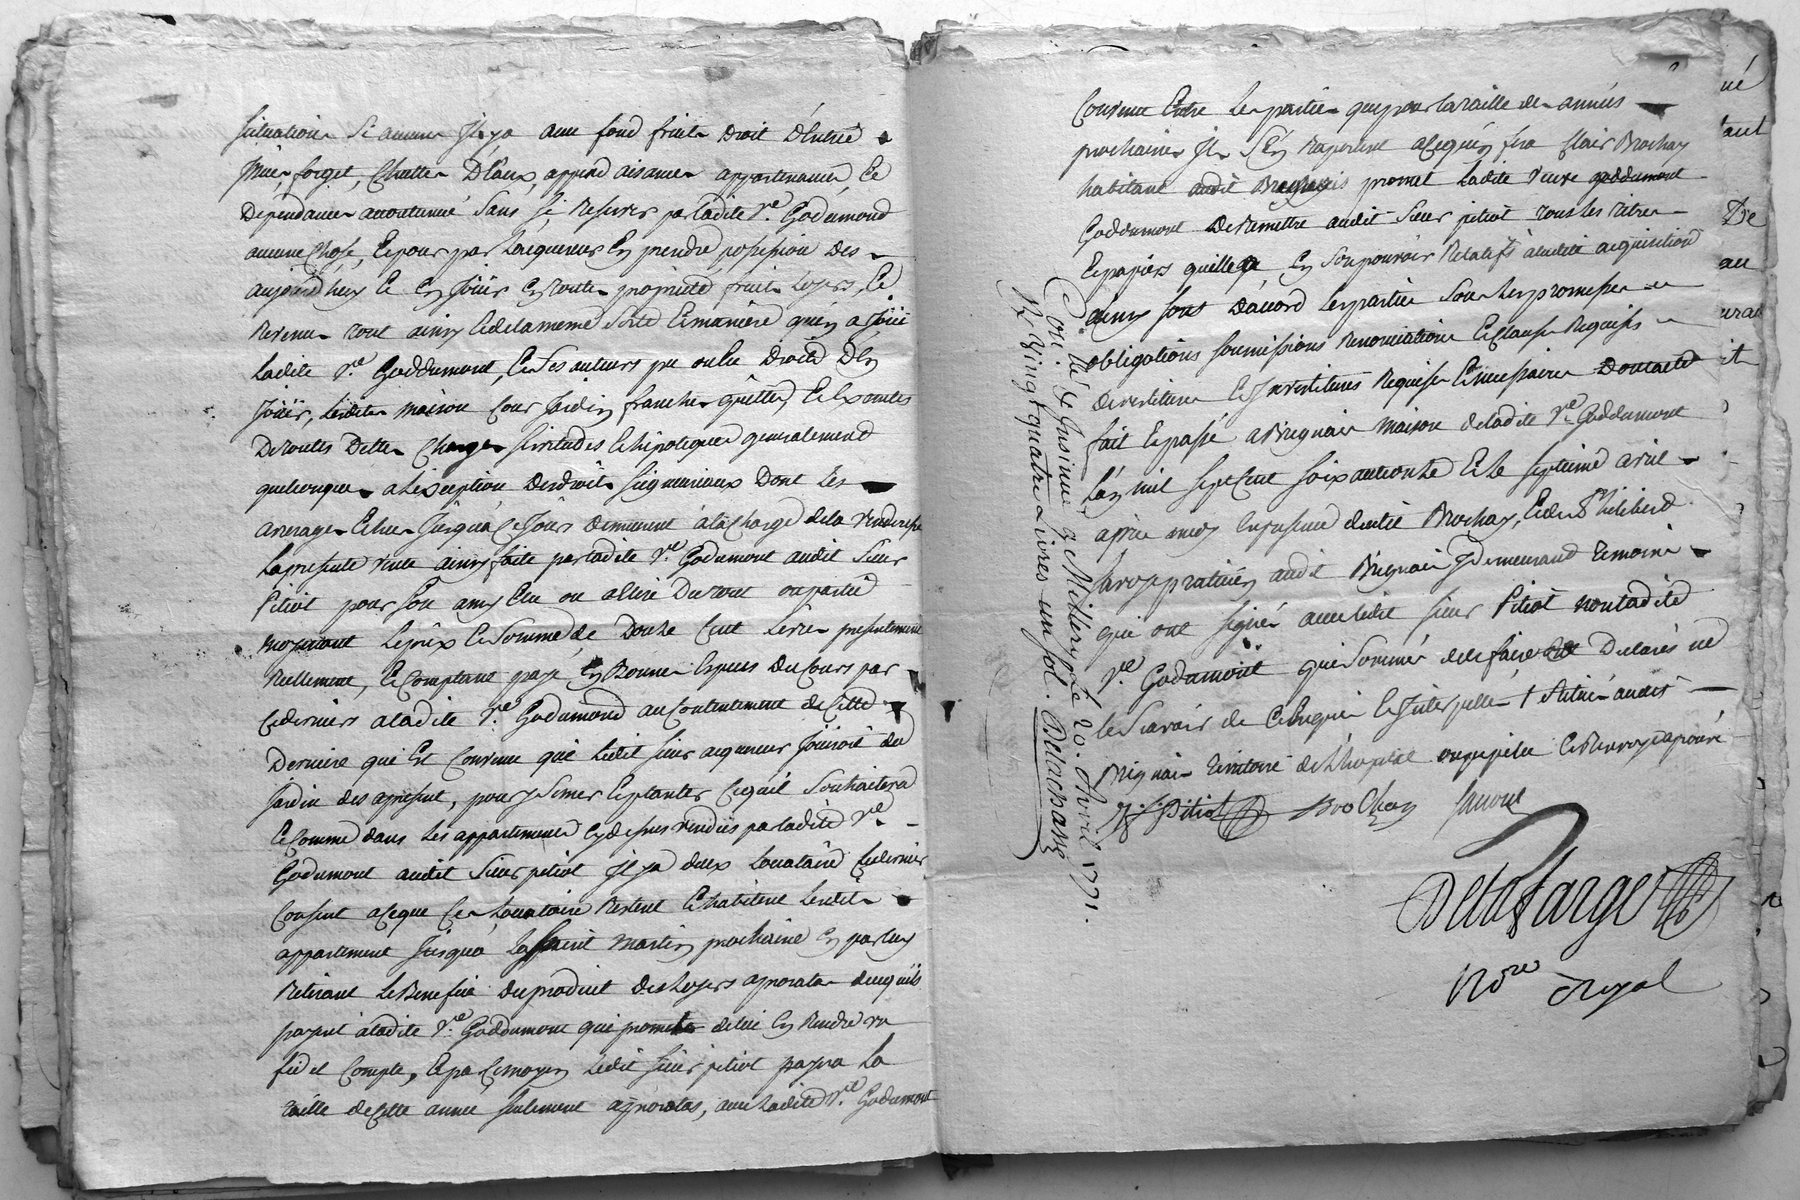 situation si aucune il y a avec fond fruits droit d'entrée
issues, forget, chutte d'eaux, append aisances appartenances, et
dépendances accoutumées sans si reserver par ladite Ve. Godumond
aucune chose, et pour par lacquereur en prendre possession des
aujourd'huy et en jouir en toute proprieté fruits loyers, et
revenu tout ainsy et de la meme sorte et maniere qu'en a jouï
ladite Ve. Goddumont, et ses auteurs pu ou eu droits d'en
jouïr, lesdits maison cour jardin franche quitte, et exemptes
de toutes dettes charges servitudes et hipoteques generalement
quelconques a lexception des droits seigneuriaux dont les
arrerages echus jusqua ce jour demeurent à la charge de la venderesse
la presente vente ainsy faite par ladite Ve. Godumont audit sieur
Pitiot pour son amy elu ou a elire du tout ou partie
moyennant le prix et somme de douze cent livres presentement
reellement, et comptant payé en bonnes especes du cours par
ce dernier a ladite Ve. Godumond au contentement de cette
derniere qui est convenue que ledit sieur acquereur jouiroit du
jardin des apresent, pour y semer et planter ce quil souhaitera
et comme dans les appartements cy dessus vendus par ladite Ve
Godumont audit sieur pitiot il y a deux locataire ce dernier
consent a ce que ces locataire restent et habitent lesdits
appartement jusqua la saint martin prochaine en par luy
retirant le benefice du produit des loyers a prorata de ce qu'ils
payent à ladite Ve. Goddumont qui promet de lui en rendre un
fidel compte, et par ce moyen ledit sieur pitiot payera la
taille de cette année seulement a prorata, avec ladite Ve. Godumont
convenu entre les parties que pour la taille des années
prochaines ils s'en raportent a ce qu'en fera Clair Brochay
habitant audit Brignais promet ladite veuve goddumont
Goddumont de remettre audit sieur pitiot tous les titres
et papiers quelle a en son pouvoir relatifs a ladite acquisition
ainsy sont d'accord les parties sous les promesses
obligations soumissions renonciations et clauses requises
devestiture et investitures requises et necessaires dont acte
fait et passé a Brignais maison de ladite Ve. Goddumont
l'an mil sept cent soixante onze et le septieme avril
apres midy en presence dudit Brochay, et de Sr. Philibert
praticien audit Brignais y demeurand temoins
qui ont signés avec ledit sieur Pitiot non ladite
Ve. Godumont qui sommée de le faire a declarés ne
le scavoir de ce enquise et interpellée † située audit
Brignais territoire de l'hopital
J. Pitiot Brochay
Delafarge
Nore Royal
Con.lé & Insinué à Millery, le 20. Avril 1771.
R. Vingt quatre Livres un sol. Delachasse
né
tant
De
au
it